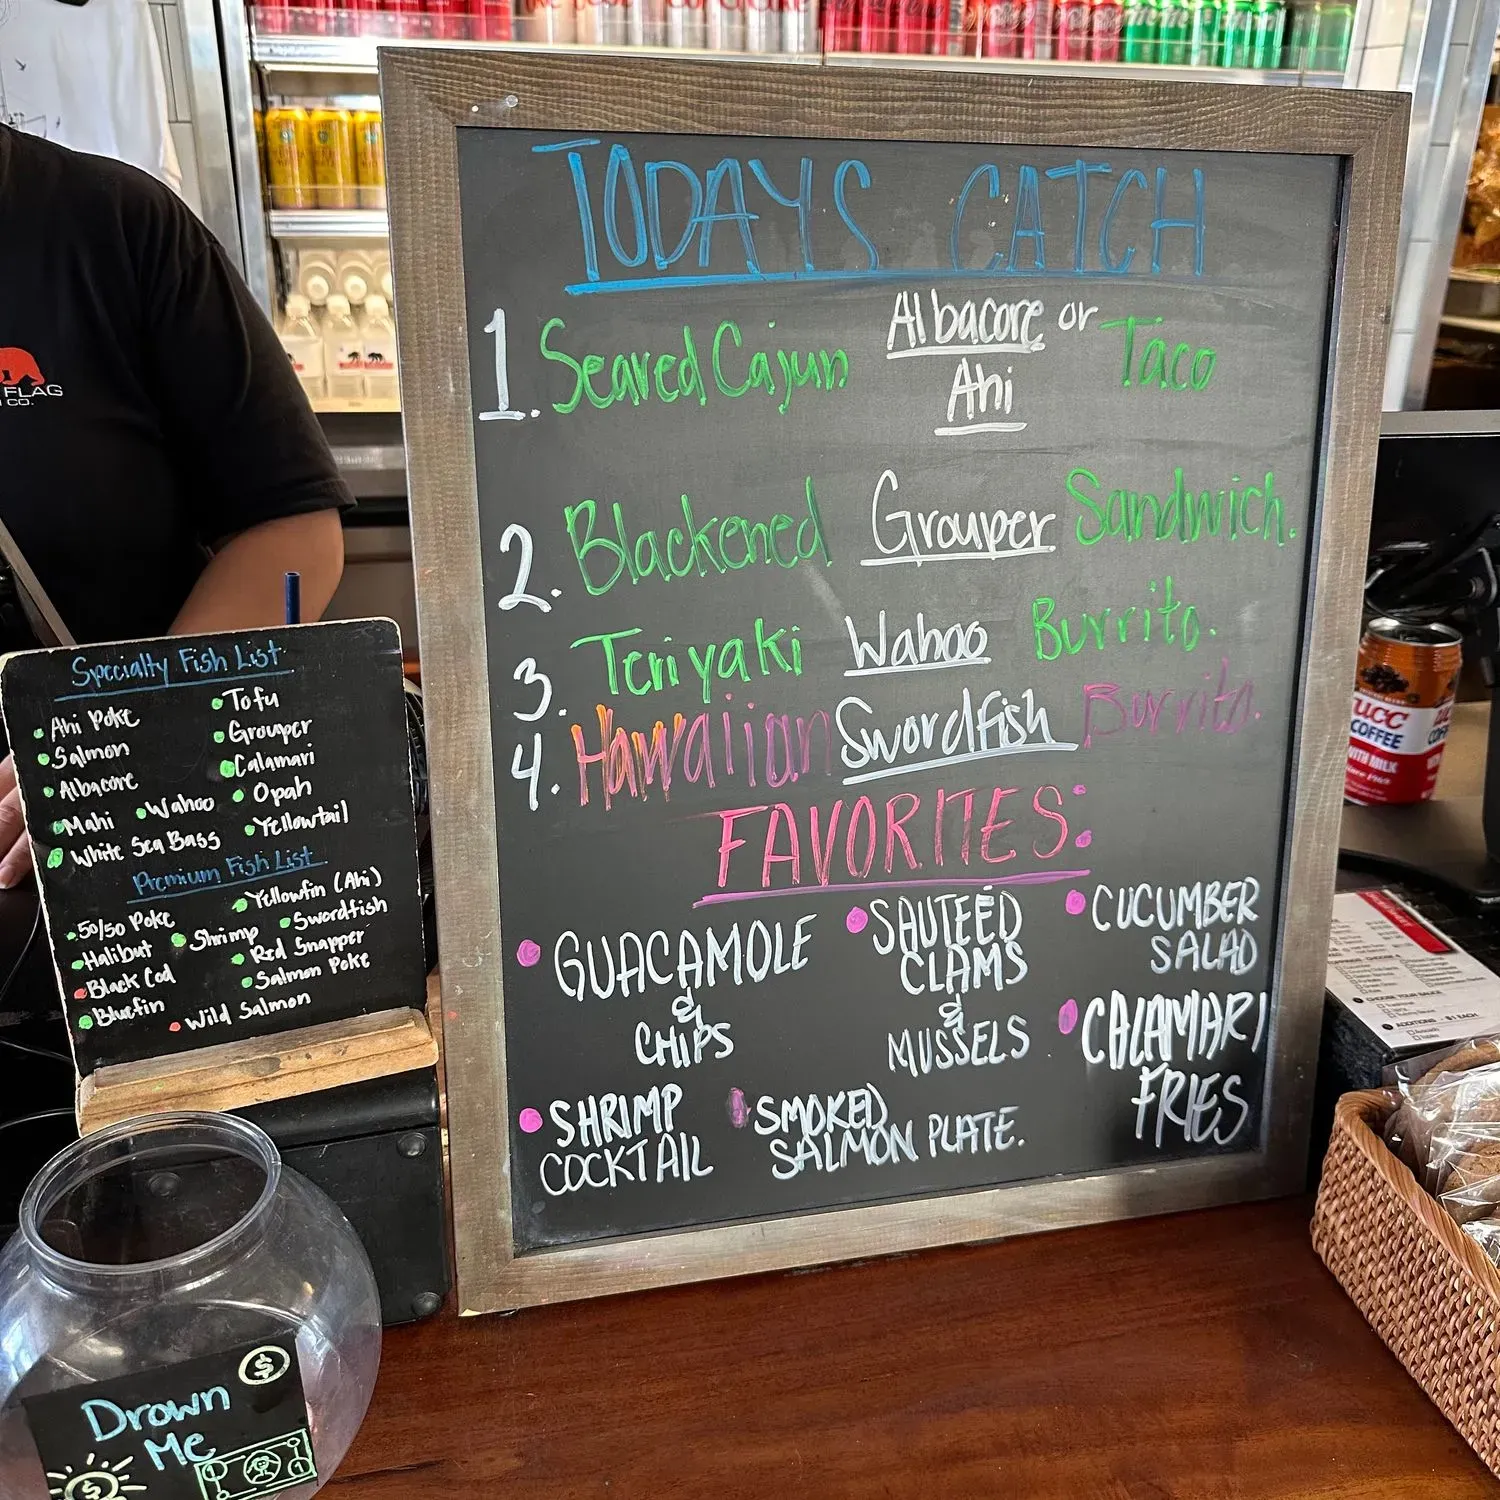 TODAYS CATCH
1. Seared Cajun Albacore or Ahi Taco
2. Blackened Grouper Sandwich.
3. Teriyaki Wahoo Burrito.
4. Hawaiian Swordfish Burrito.
FAVORITES:
GUACAMOLE
&
CHIPS
SAUTEED
CLAMS
&
MUSSELS
CUCUMBER
SALAD
CALAMARI
FRIES
SHRIMP
COCKTAIL
SMOKED
SALMON PLATE.
Specialty Fish List
Ahi Poke
Salmon
Albacore
Mahi
Wahoo
White Sea Bass
Tofu
Grouper
Calamari
Opah
Yellowtail
Premium Fish List
50/50 Poke
Halibut
Black Cod
Bluefin
Yellowfin (Ahi)
Shrimp
Swordfish
Red Snapper
Salmon Poke
Wild Salmon
Drown
Me
$
$
1
FLAG
CO.
UCC
COFFEE
WITH MILK
CHOOSE YOUR SAUCE
ADDITIONS - $1 EACH